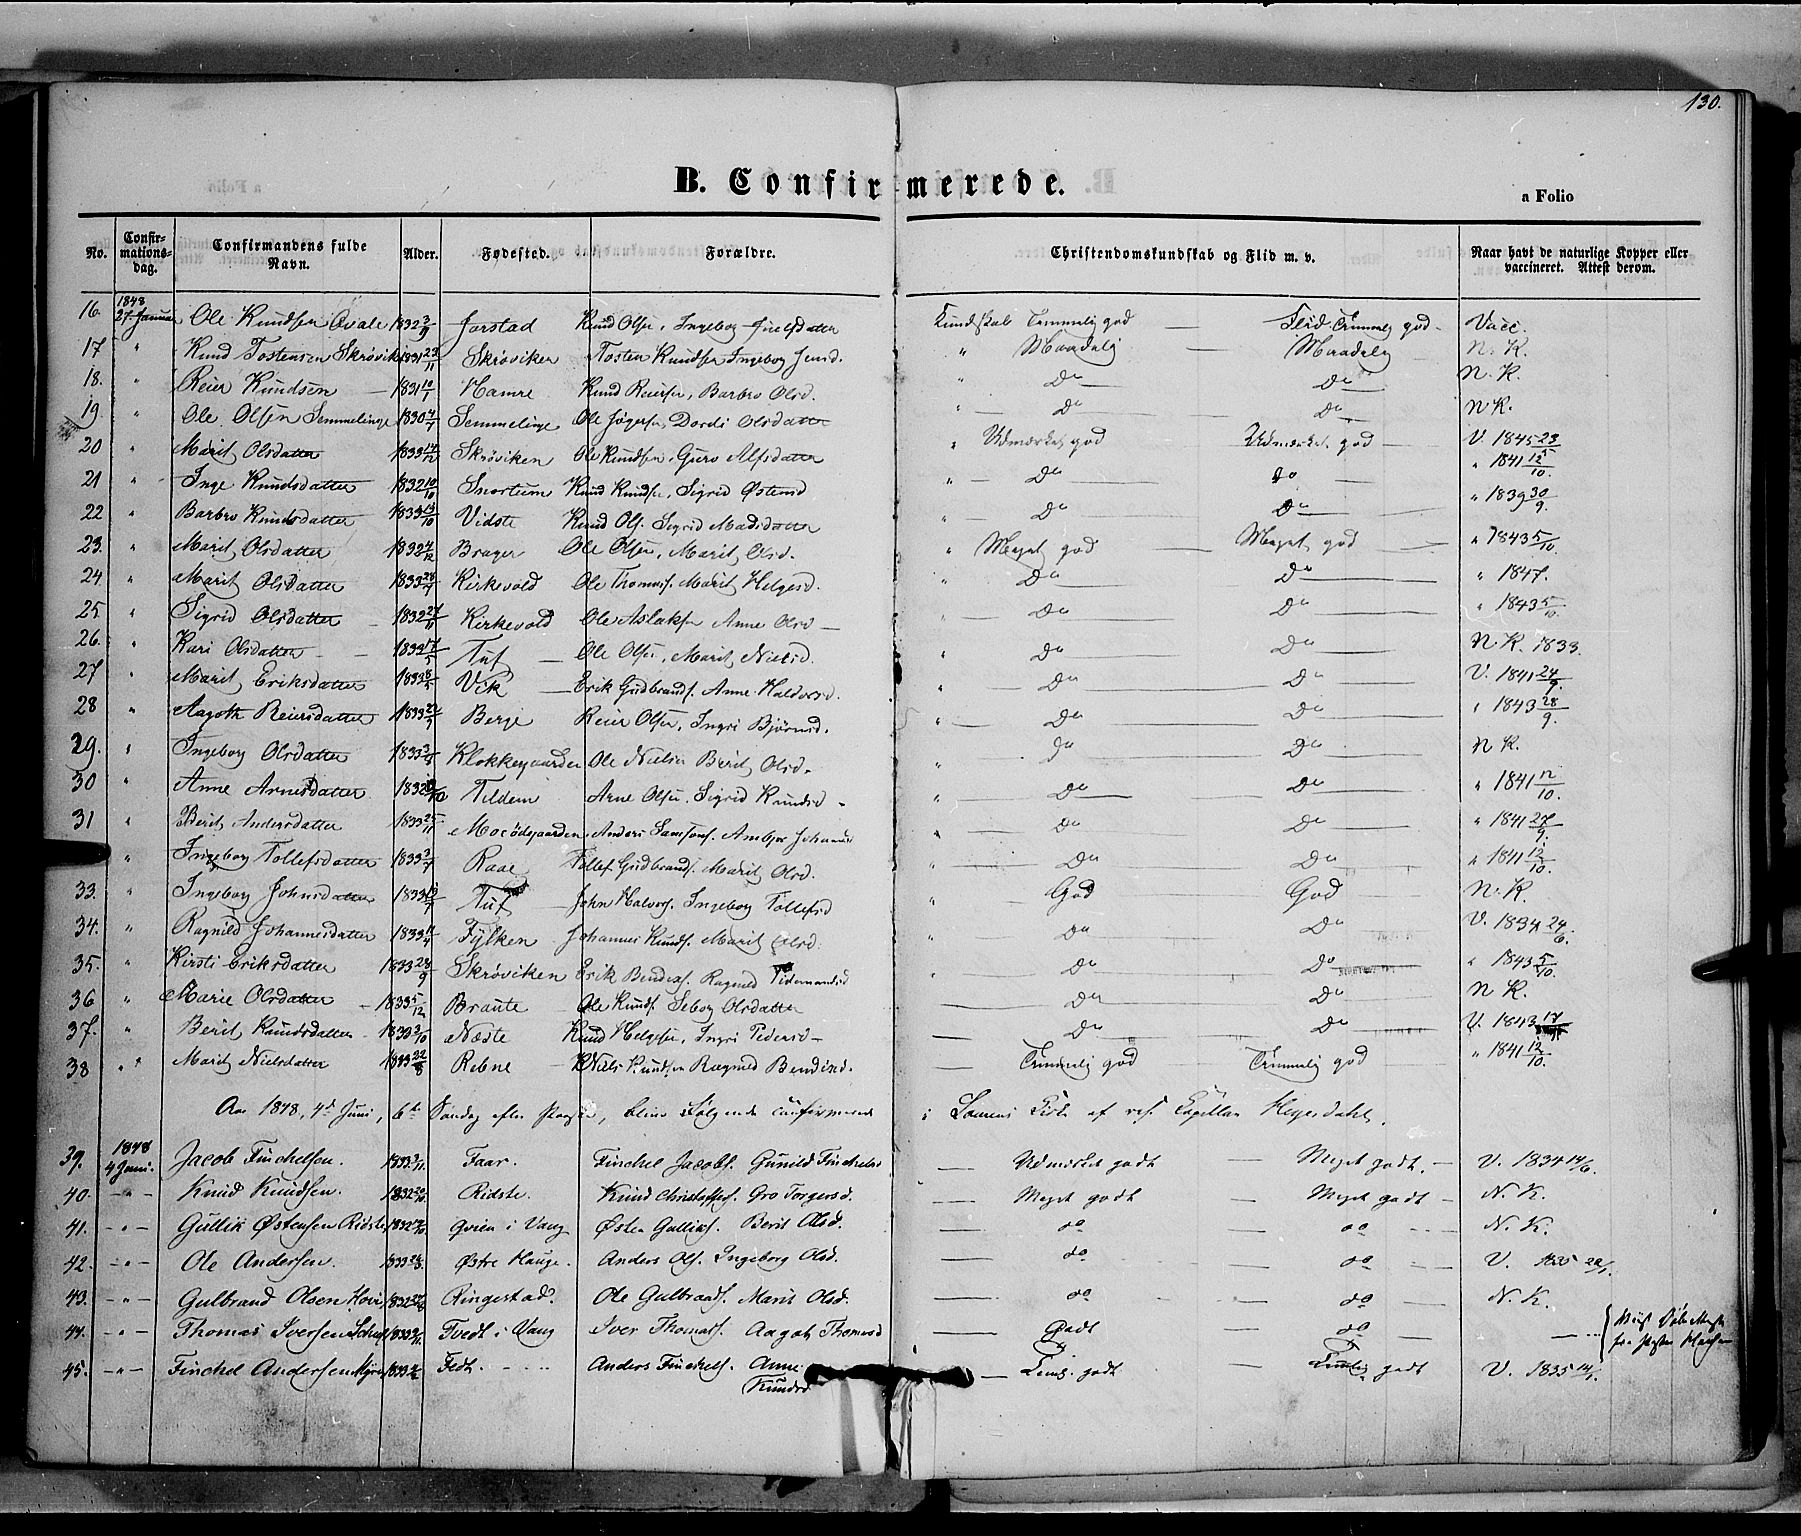 130.
B. Confirmerede.
a Folio
No. Confirmationsdag. Confirmandens fulde Navn. Alder. Fødested. Forældre. Christendomskundskab og Flid m. v. Naar havt de naturlige Kopper eller vaccineret. Attest derom.
16. 1848 27 Januar Ole Knudsen Qvale 1832 Jorstad Knud Olsen, Ingeborg Kundskab Temmelig god — Flid Temmelig god - Vacc.
17 " Knud Tostensen Skrøvik 1831 23/11 Skrøviken Tosten Knudsen Ingeborg Jensd. " Maadelig — Maadelig — N. K.
18. " Reier Knudsen — 1831 10/1 Hamre Knud Reiersen, Barbro Olsd. " Do — Do N. K.
19. " Ole Olsen Semmelinge 1830 4/7 Semmelinge Ole Dordi Olsdatter " Do — Do N K.
20 " Marit Olsdatter 1833 Skrøviken Ole Knudsen, Guro Alfsdatter " Udmærket god Udmærket god — V. 1845 23/5
21 " Inge Knudsdatter 1832 10/10 Snortum Knud Knudsen, Sigrid Østensd " Do Do — " 1841 12/10.
22 " Barbro Knudsdatter 1833 13/10 Vidste Knud Ols. Sigrid Madsdatter " Do Do " 1839 30/9.
23. " Marit Olsdatter 1832 4/12 Brager Ole Olsen, Marit Olsd. " Meget god — Meget god — " 1843 5/10.
24 " Marit Olsdatter 1833 Kirkevold Ole Thomass. Marit Helgesd. Do — Do " 1847.
25. " Sigrid Olsdatter 1832 27/11 Kirkevold Ole Aslaksen Anne Olsd — Do — Do " 1843 5/10.
26. " Kari Olsdatter — 1833 17/5 Tuf — Ole Olsen, Marit Nielsd. " Do — Do N. K. 1833.
27 " Marit Eriksdatter 1833 8/5 Vik — Erik Gudbrands. Anne Haldorsd. " Do — Do V. 1841 24/9.
28 " Aagoth Reiersdatter 1833 Berge Reier Olsen, Ingri Bjørnsd. " Do — Do " 1843 28/9.
29. " Ingeborg Olsdatter 1833 Klokkegaarden Ole Nielsen Berit Olsd. " Do — Do N K.
30 " Anne Arnesdatter 1832 Tildem Arne Olsen, Sigrid Knudsd - " Do — Do " 1841 12/10.
31 " Berit Andersdatter 1833 25/11 Anders Samsons. Johannesd " Do — Do " 1841 27/9.
" Ingeborg Tollefsdatter 1833 3/7 Raae Tollef Gudbrands. Marit Olsd. " Do Do " 1841 12/10.
33. " Ingeborg Johnsdatter 1833 Tuf — John Halvors. Ingeborg Tollefsd " God God N. K.
34. " Ragnild Johannesdatter 1833 Fylken Johannes Knuds. Marit Olsd. " Do — Do V. 1834 24/6.
35. " Kirsti Eriksdatter 1833 28/9 Skrøviken Erik Ragnild Tidemandsd " Do — Do " 1843 5/10.
36 " Marie Olsdatter - 1833 5/12 Braute Ole Knuds. Seborg Olsdatter Do Do N K.
37. " Berit Knudsdatter 1833 Næste Knud Helgesen, Ingri Pedersd — Do — Do V. 1843 17/
38 " Marit Nielsdatter 1833 22/8 Rebne — Niels Knudsen Ragnild Bendixd. Temmelig god Temmelig god " 1841 12/10.
Aar 1848, 4de Juni, 6te Søndag efter Paaske, bleve Følgende confirmerede i Lomens Kirke af res. Capellan Heyerdahl.
39. 1848 4 Juni. Jacob Finchelsen. 1833 Faar. Finchel Jacobs. Gunild Finchelsd — Udmærket godt Meget godt. — V. 1834 14/6.
40. —"— Knud Knudsen. 1832 Ridste. Knud Christophers. Gro Torgersd. — Meget godt — Meget godt — N. K.
41. —"— Gullik Østensen Ridste 1832 Qvien i Vang Østen Gulliks. Berit Olsd. — do — do — N. K.
42. —"— Ole Andersen. 1833 Østre Hauge. Anders Ols. Ingeborg Olsd. — do — do — V. 1835 22/1.
43. —"— Gulbrand Olsen Hovi 1832 Ringestad. Ole Gulbrands. Marit Olsd. — do — do N. K.
44. —"— Thomas Iversen 1833 Tvedt i Vang Iver Thomass. Aagot Thomasd — Godt do —
45. —"— Finchel Andersen Myren 1833 Fedt. Anders Finchels. Anne Knudsd — Teml. godt — Temlig godt V. 1835 14/1.